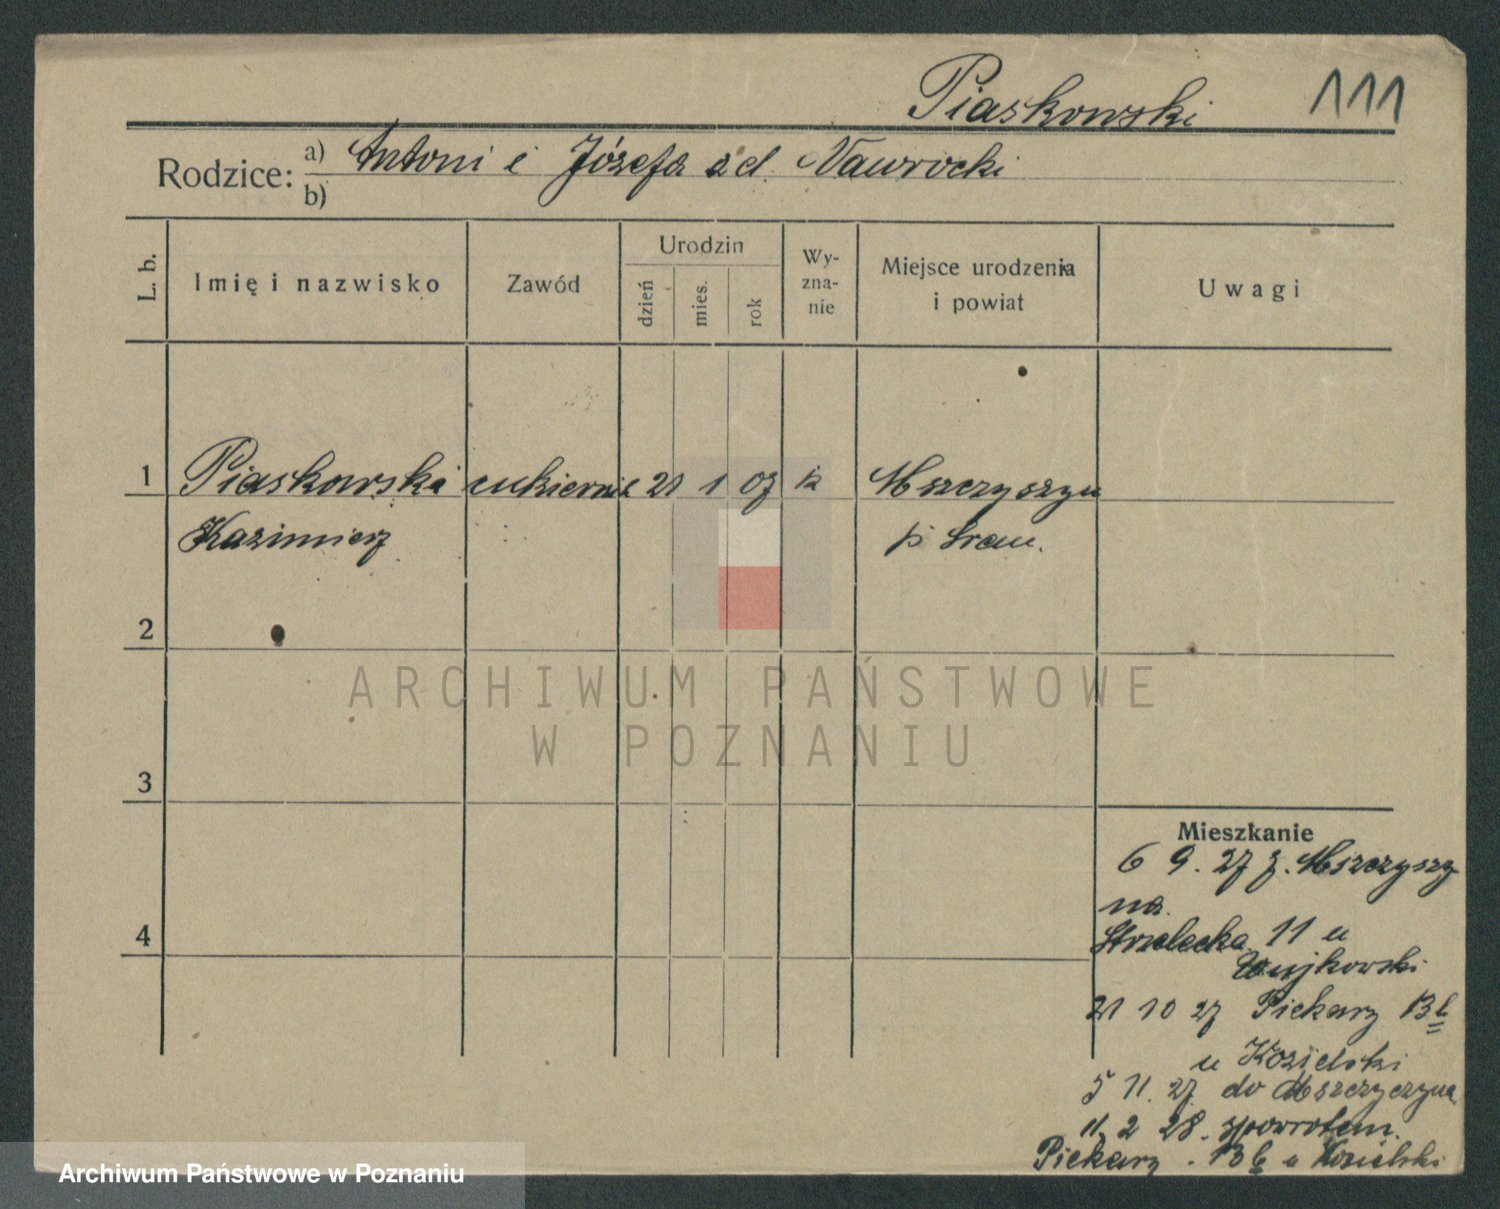 Piaskowski 111
Rodzice: a) Antoni i Józefa z d. Nawrocki
b)
L. b. Imię i nazwisko Zawód Urodzin dzień mies. rok Wyzna-nie Miejsce urodzenia i powiat Uwagi
1 Piaskowski cukiernik 21 1 07 k Mszczyszyn
Kazimierz p Śrem.
2
ARCHIWUM PAŃSTWOWE
W POZNANIU
3
Mieszkanie
6 9. 27 z. Mszczyszy
na.
4
Strzelecka 11 u
Wujkowski
21 10 27 Piekary 13b
u Kozielski
5 11. 27. do Mszczyczyna
11 2 28. spowrotem.
Piekary. 13b u Kozielski
Archiwum Państwowe w Poznaniu